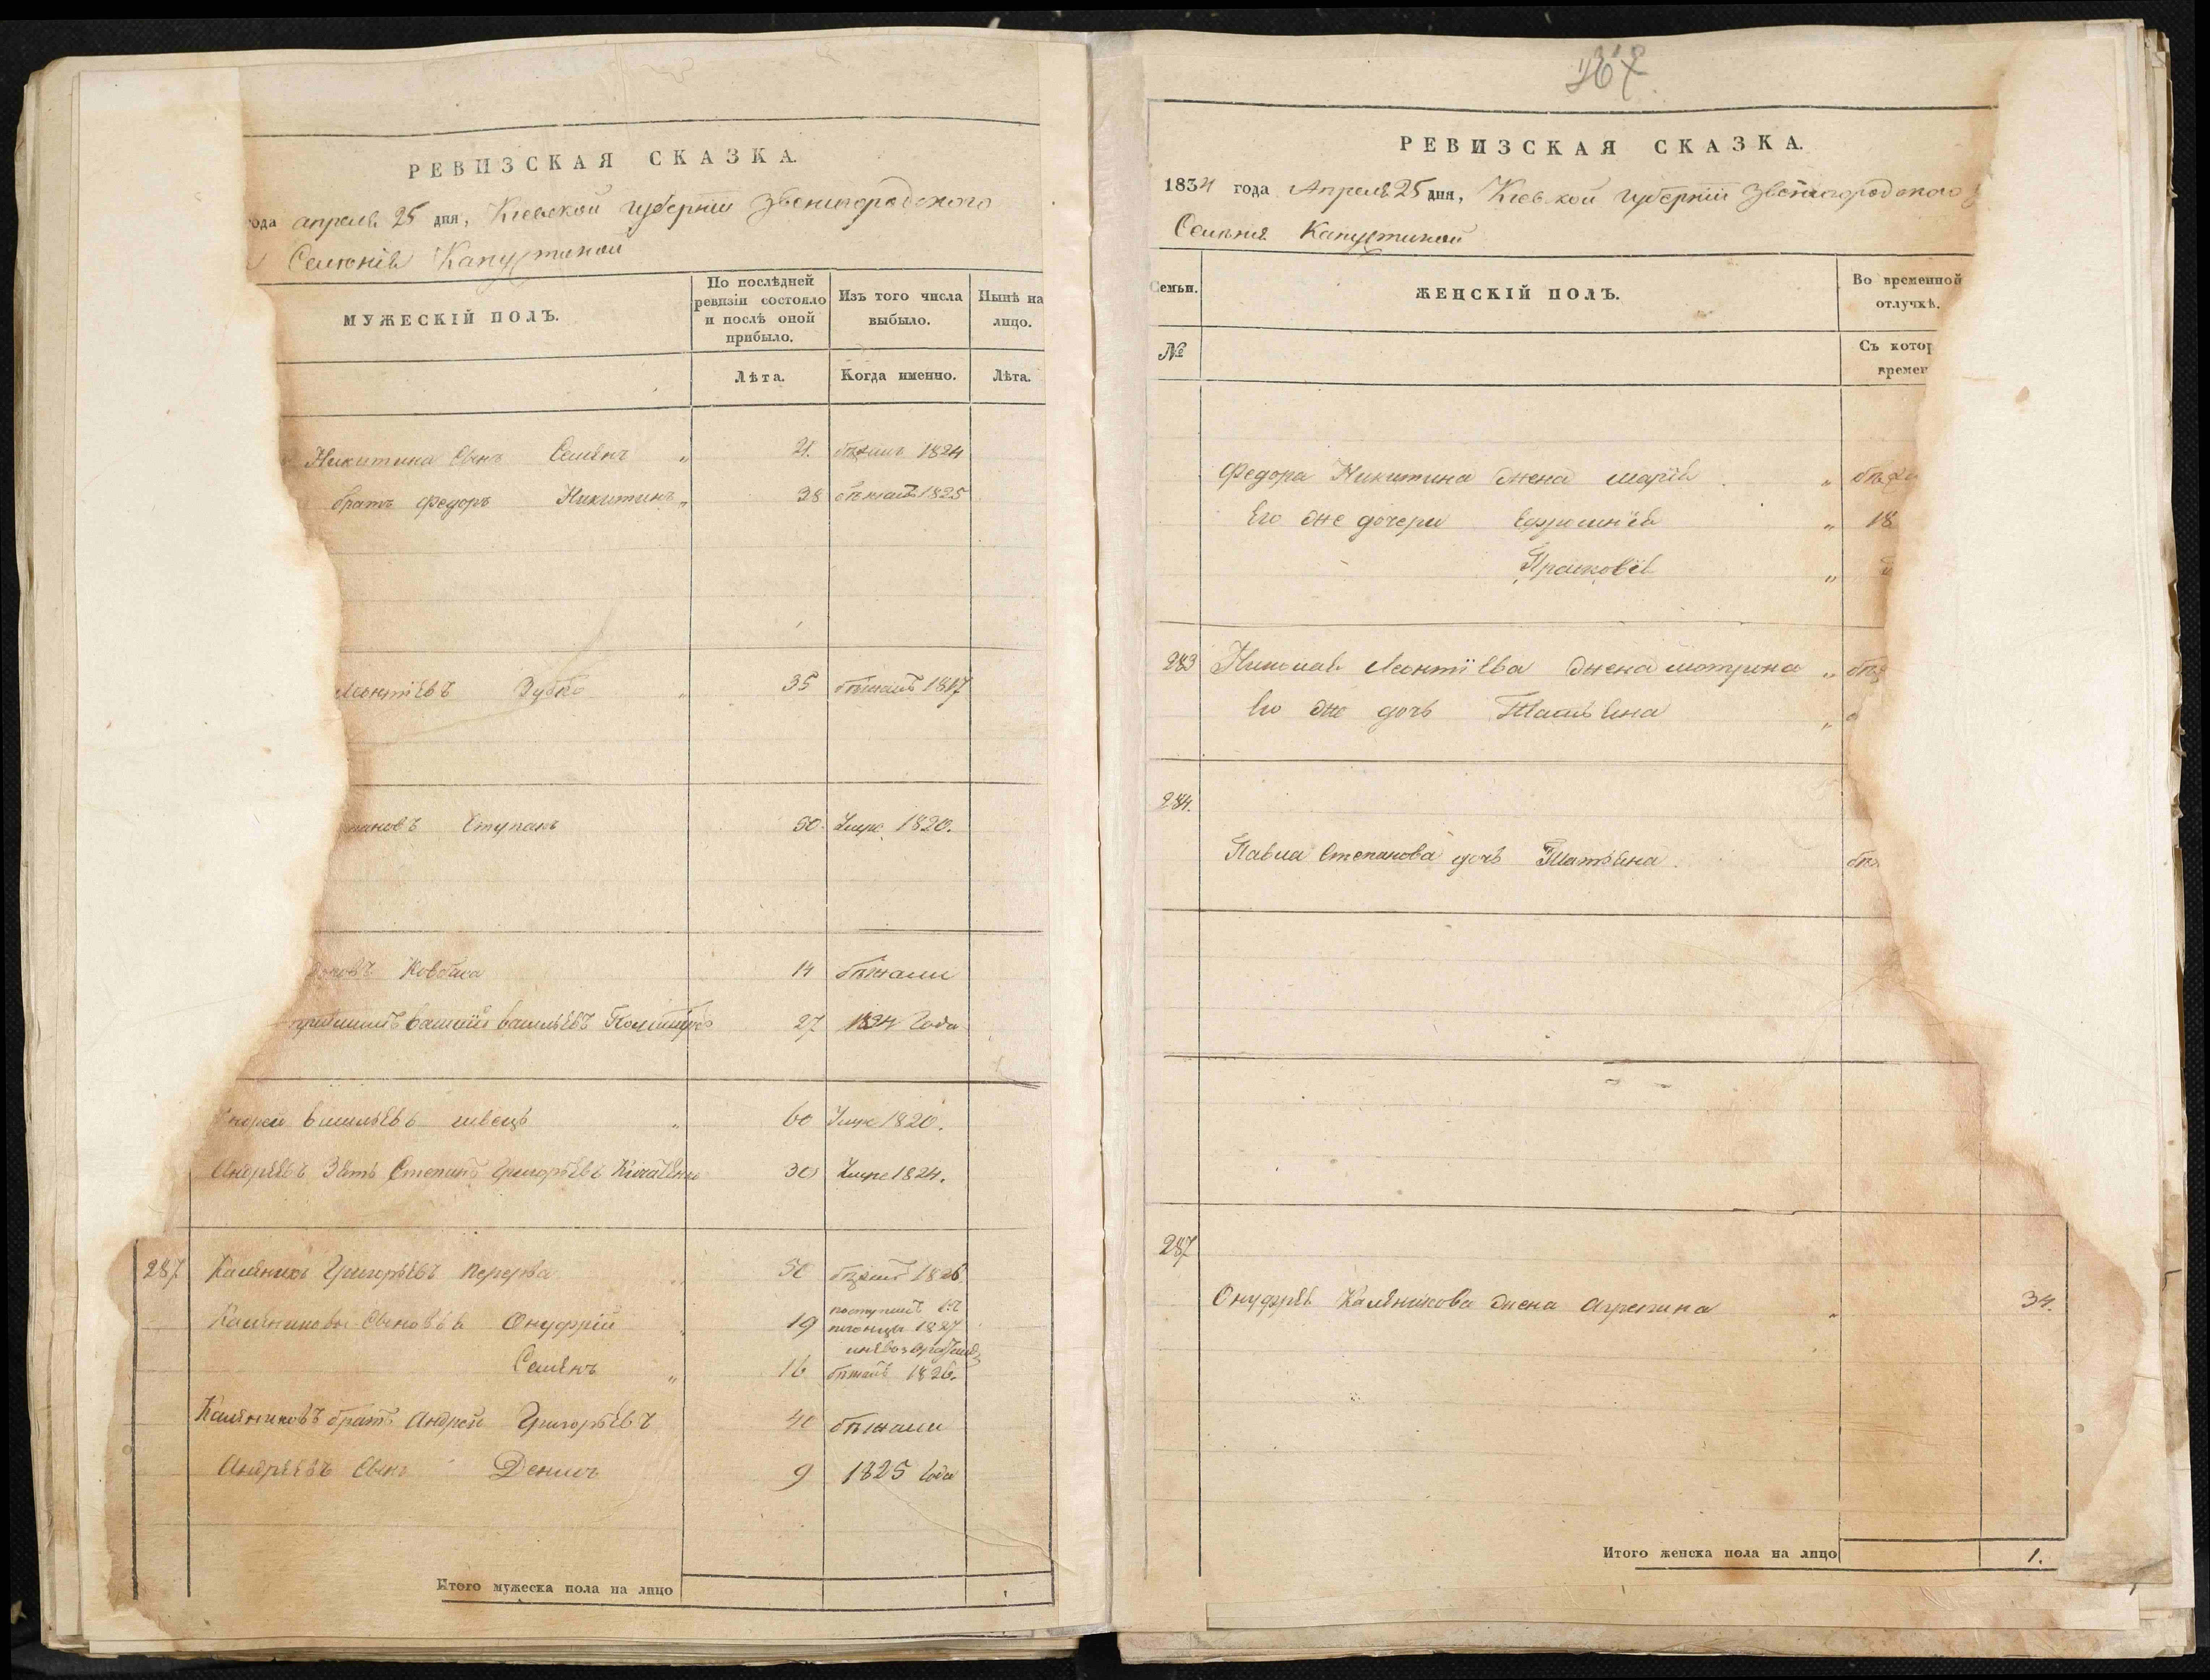 РЕВИЗСКАЯ СКАЗКА.
года апреля 25 дня, Кіевской губерніи Звенигородского
Селенія Капустиной
МУЖЕСКІЙ ПОЛЪ.
По послѣдней ревизіи состояло и послѣ оной прибыло.
Изъ того числа выбыло.
Нынѣ на лицо.
Лѣта.
Когда именно.
Лѣта.
Никитина сынъ Семенъ " 21. бѣжалъ 1824
братъ Федоръ Никитинъ " 38 бѣжалъ 1825
Леонтіевъ Зубко " 35 бѣжалъ 1817
Ступакъ 50. Умре 1820.
Ковбаса 14 бѣжали
Василій Васильевъ 27 1824 Года
Андрей Васильевъ швецъ " 60 Умре 1820.
Андреевъ Зять Степанъ Григорьевъ 30 Умре 1824.
287 Каленикъ Григорьевъ Перерва 50 бѣжалъ 1826.
Калениковы Сыновья Онуфрій 19 поступилъ 1827
Семенъ " 16 бѣжалъ 1826.
Калениковъ братъ Андрей Григорьевъ 40 бѣжали
Андреевъ Сынъ Денисъ 9 1825 Года
Итого мужеска пола на лицо
РЕВИЗСКАЯ СКАЗКА.
1834 года Апреля 25 дня, Кіевской губерніи Звенигородского
Селенія Капустиной
Семьи.
ЖЕНСКІЙ ПОЛЪ.
Во временной отлучкѣ.
№
Съ котор
времен
Федора Никитина жена Марія "
Его же дочери Ефросинія " 18
Прасковія "
283 Николая Леонтіева жена Мотрона "
Его же дочь Татьяна "
284.
Павла Степанова дочь Татьяна
287
Онуфрія Каленикова жена Агрепина " 34.
Итого женска пола на лицо 1.